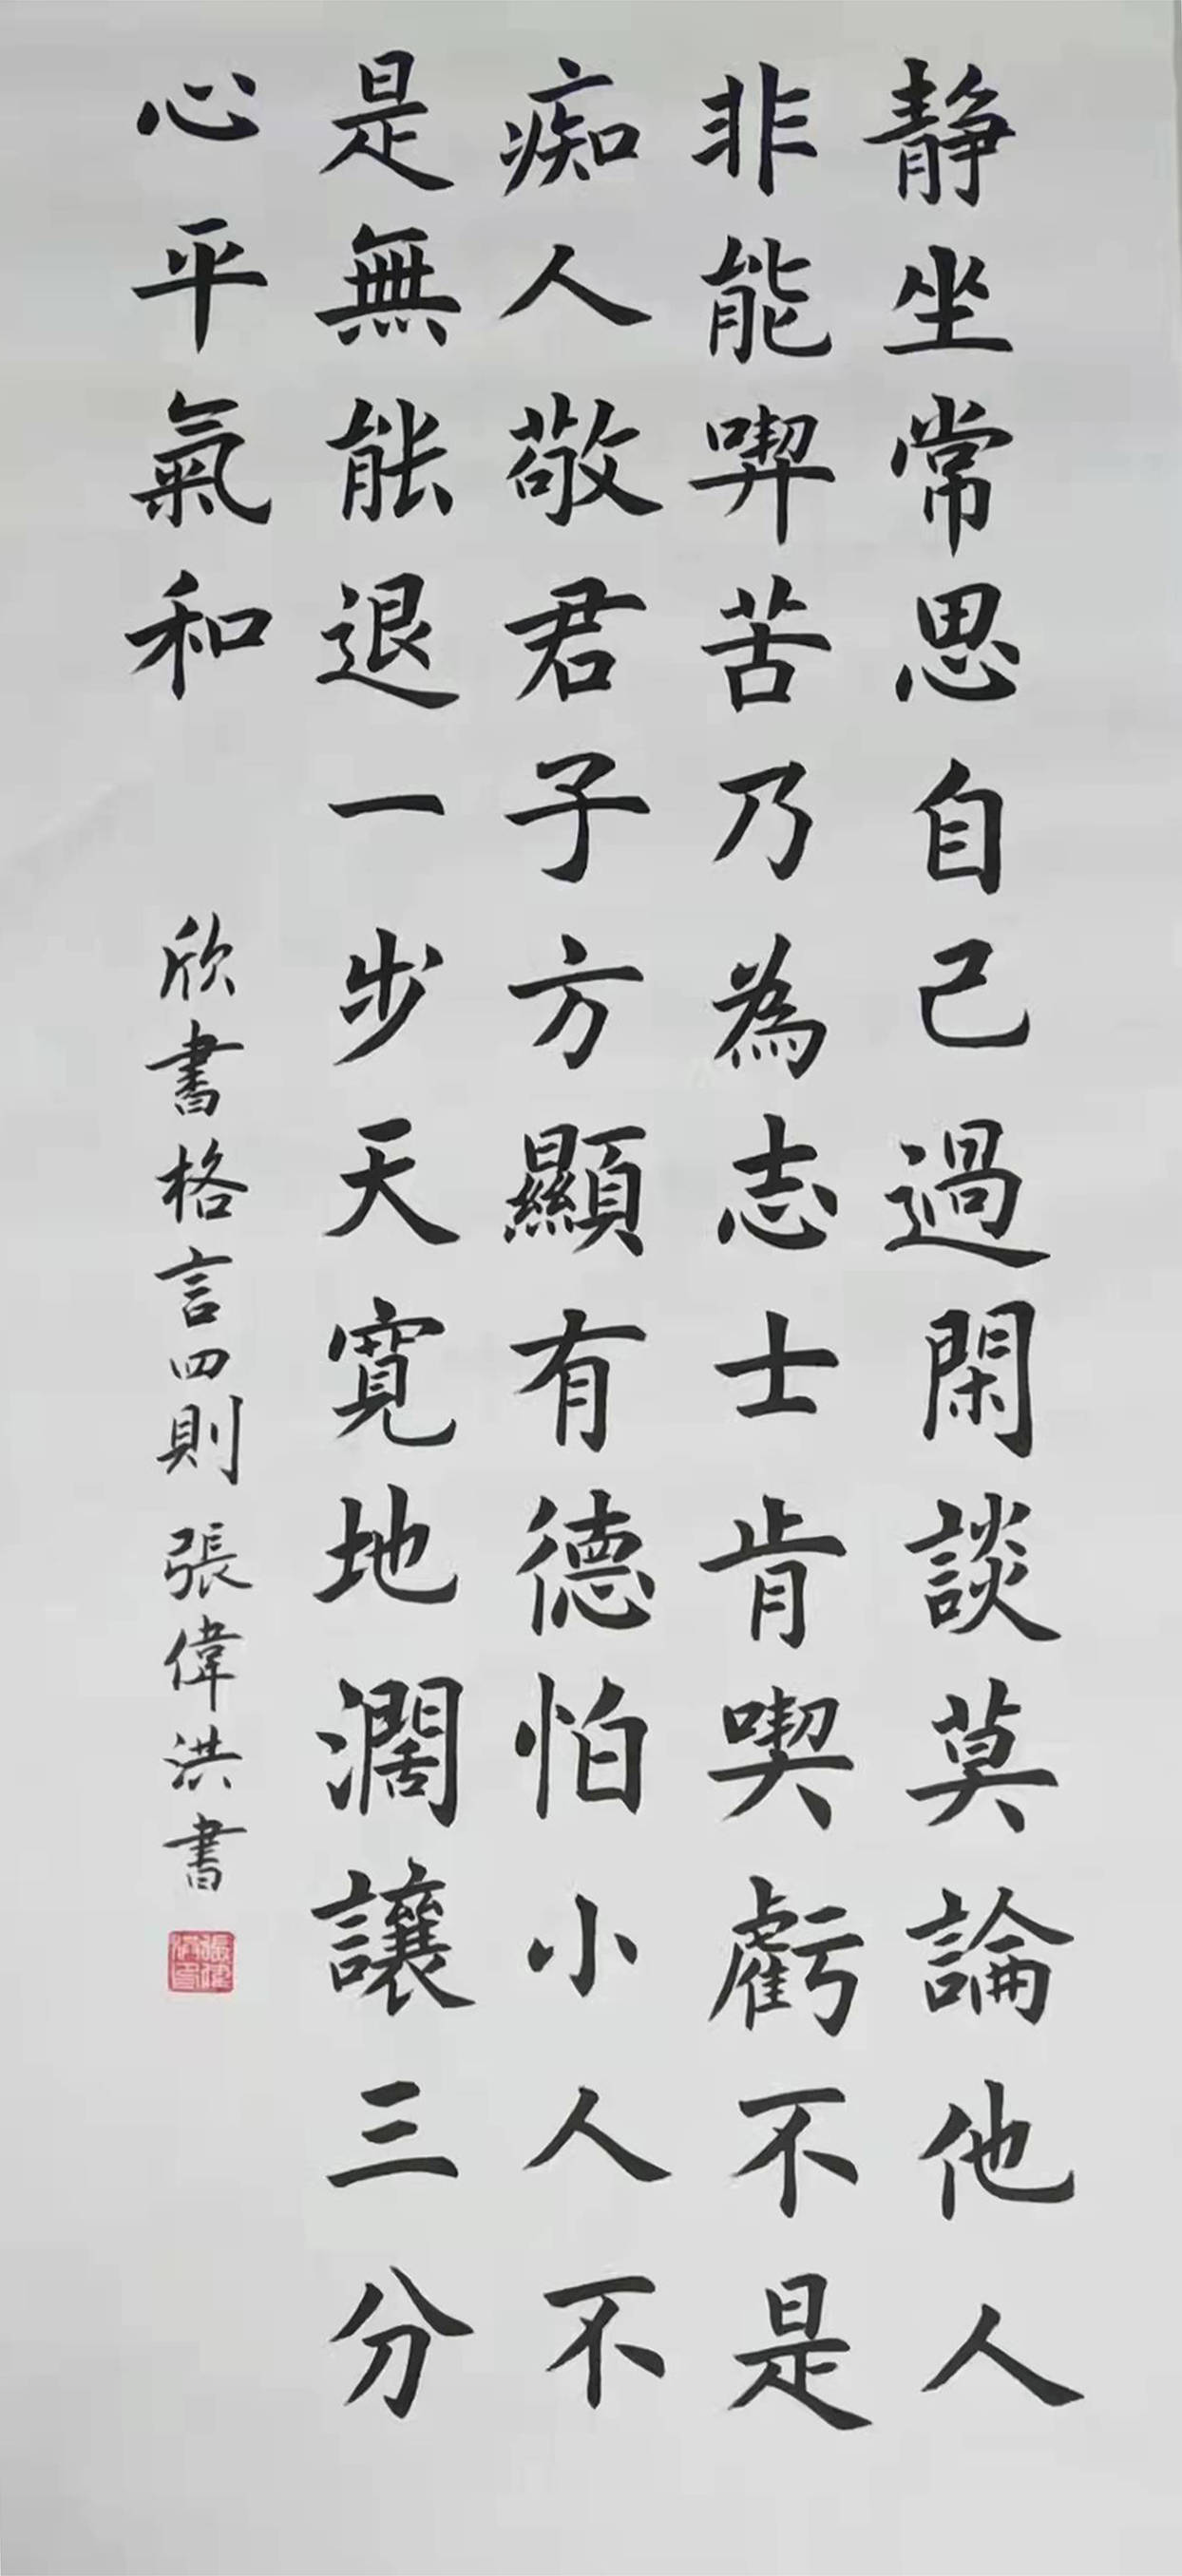 静坐常思自己過閑談莫論他人
非能喫苦乃為志士肯喫虧不是
痴人敬君子方顯有德怕小人不
是無能退一步天寬地濶讓三分
心平氣和
欣書格言四則張偉洪書